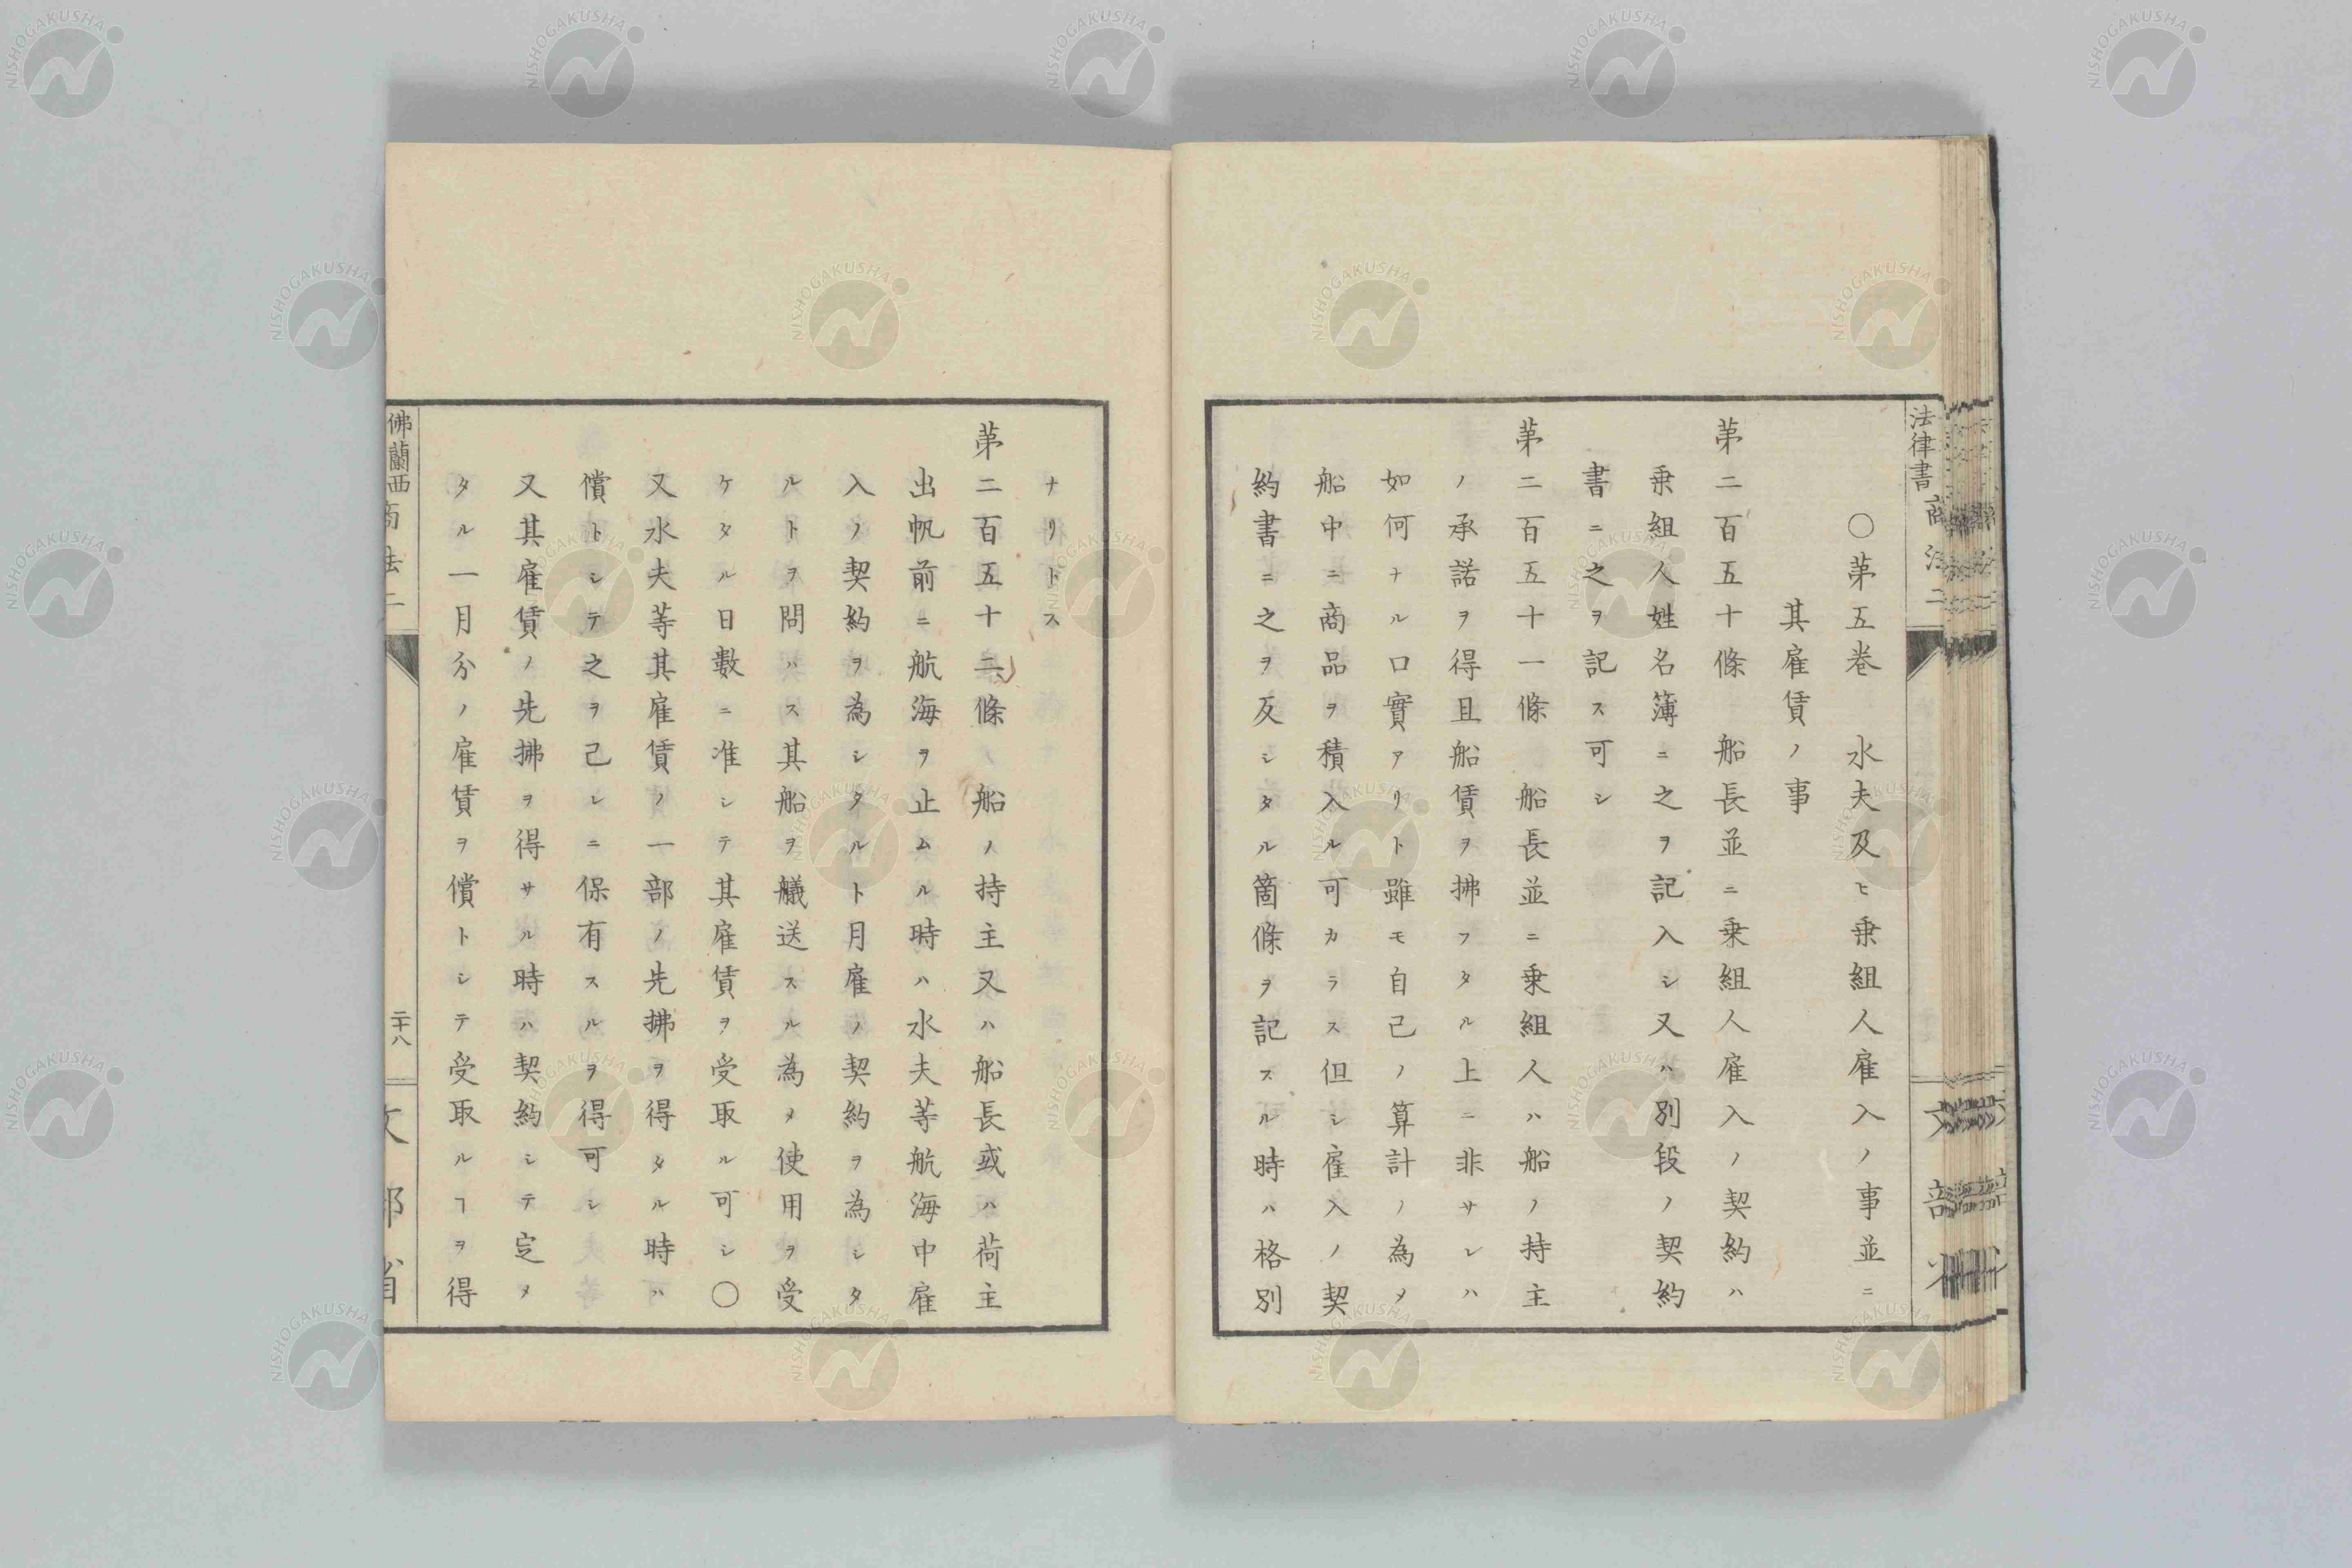 法律書 商法二
文部省
○第五巻 水夫及ヒ乗組人雇入ノ事並ニ
其雇賃ノ事
第二百五十條 船長並ニ乗組人雇入ノ契約ハ
乗組人姓名簿ニ之ヲ記入シ又ハ別段ノ契約
書ニ之ヲ記ス可シ
第二百五十一條 船長並ニ乗組人ハ船ノ持主
ノ承諾ヲ得且船賃ヲ拂フタル上ニ非サレハ
如何ナル口實アリト雖モ自己ノ算計ノ為メ
船中ニ商品ヲ積入ル可カラス但シ雇入ノ契
約書ニ之ヲ反シタル箇條ヲ記スル時ハ格別
ナリトス
第二百五十二條 船ノ持主又ハ船長或ハ荷主
出帆前ニ航海ヲ止ムル時ハ水夫等航海中雇
入ノ契約ヲ為シタルト月雇ノ契約ヲ為シタ
ルトヲ問ハス其船ヲ艤送スル為メ使用ヲ受
ケタル日數ニ准シテ其雇賃ヲ受取ル可シ○
又水夫等其雇賃ノ一部ノ先拂ヲ得タル時ハ
償トシテ之ヲ己レニ保有スルヲ得可シ
又其雇賃ノ先拂ヲ得サル時ハ契約シテ定メ
タル一月分ノ雇賃ヲ償トシテ受取ルヿヲ得
佛蘭西商法二
二十八
文部省
NISHOGAKUSHA